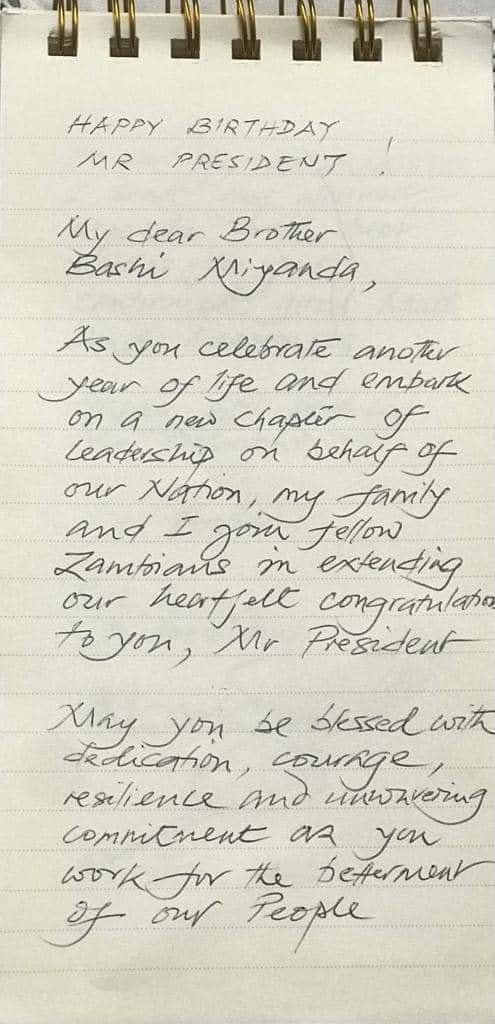 HAPPY BIRTHDAY
MR PRESIDENT !
My dear Brother
Bashi Miyanda,
As you celebrate another
year of life and embark
on a new chapter of
leadership on behalf of
our Nation, my family
and I join fellow
Zambians in extending
our heartfelt congratulations
to you, Mr President
May you be blessed with
dedication, courage,
resilience and unwavering
commitment as you
work for the betterment
of our People